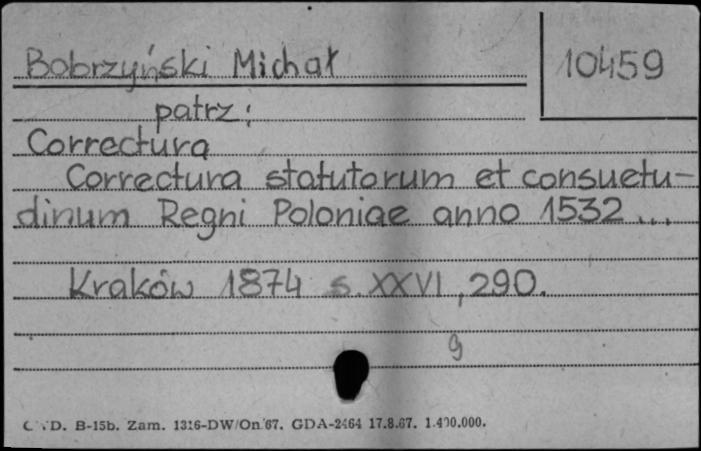 Bobrzyński Michał
10459
patrz:
Correctura
Correctura statutorum et consuetu-
dinum Regni Poloniae anno 1532...
Kraków 1874 s. XXVI, 290.
9
B-15b. Zam. 1316-DW/On.67. GDA-2464 17.8.67. 1.400.000.